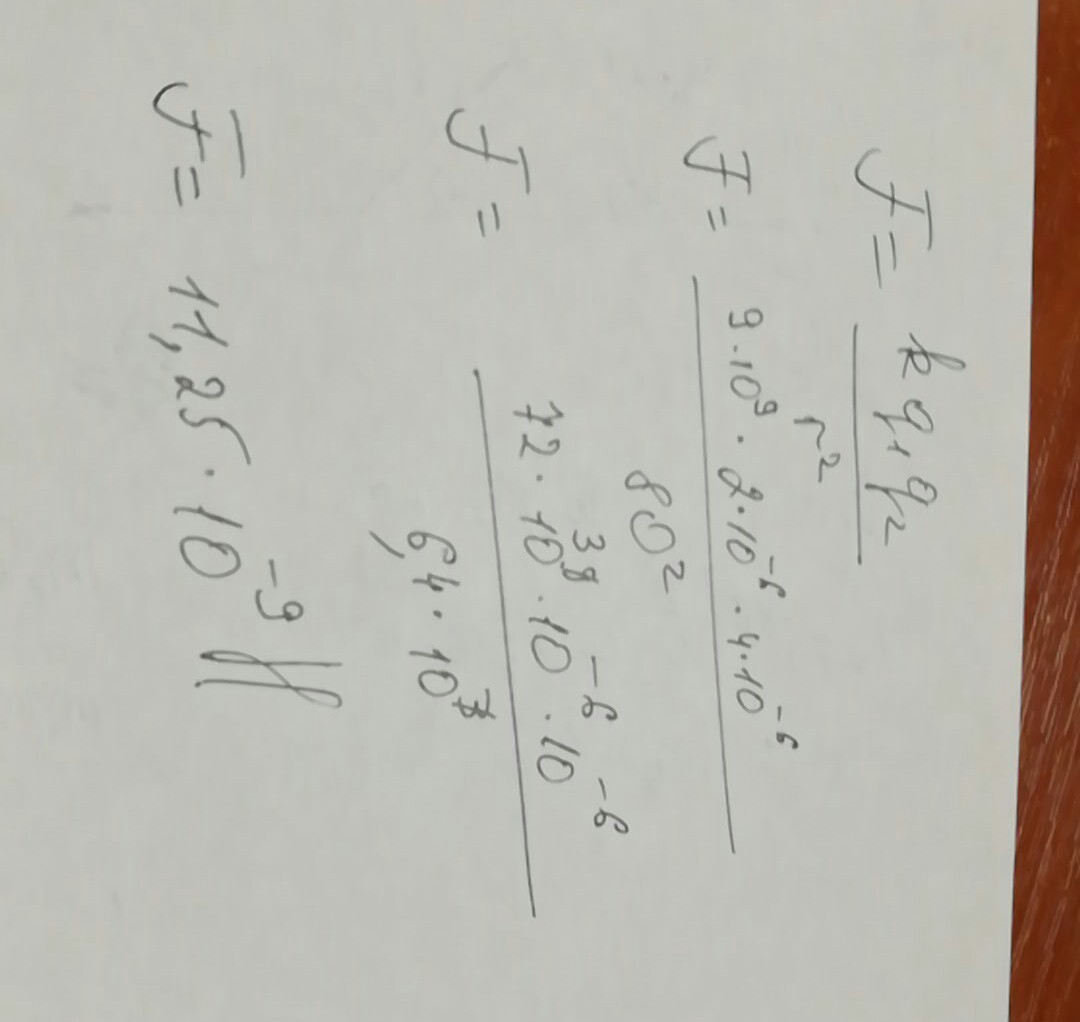 F = k q₁ q₂ / r²
F = 9·10⁹ · 2·10⁻⁶ · 4·10⁻⁶ / 80²
F = 72·10³ · 10⁻⁶ · 10⁻⁶ / 6,4·10
F = 11,25 · 10⁻⁹ H